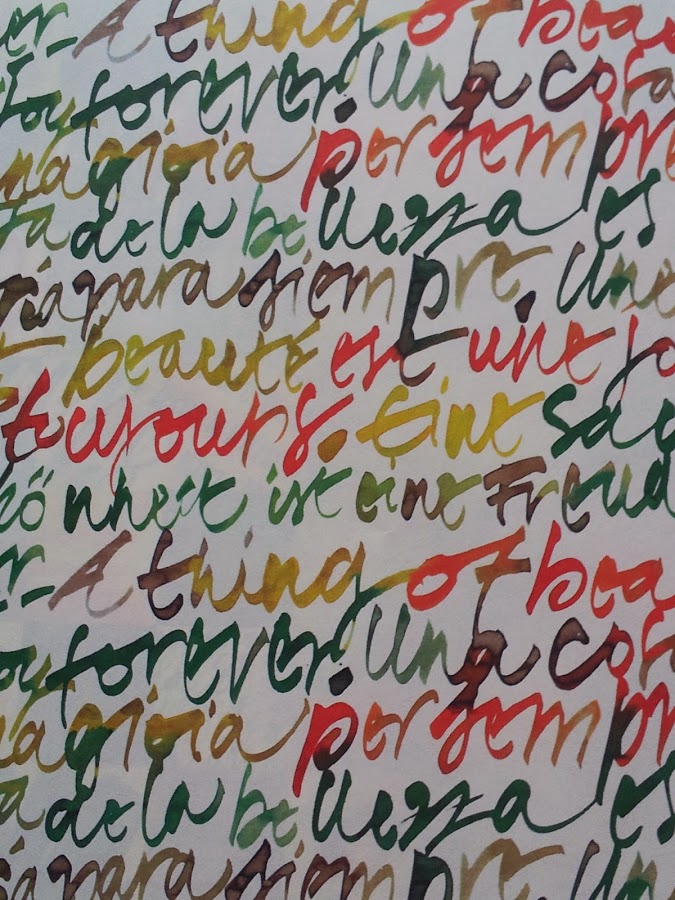 er- A thing of beau
oy forever. Una cosa
una gioia per sempre
ta de la bellezza es
ría para siempre. Une
beauté est une jo
toujours. Eine Sac
hönheit ist eine Freud
er- A thing of beau
oy forever. Una cosa
una gioia per sempre
ta de la bellezza es
ía para siempre. Un